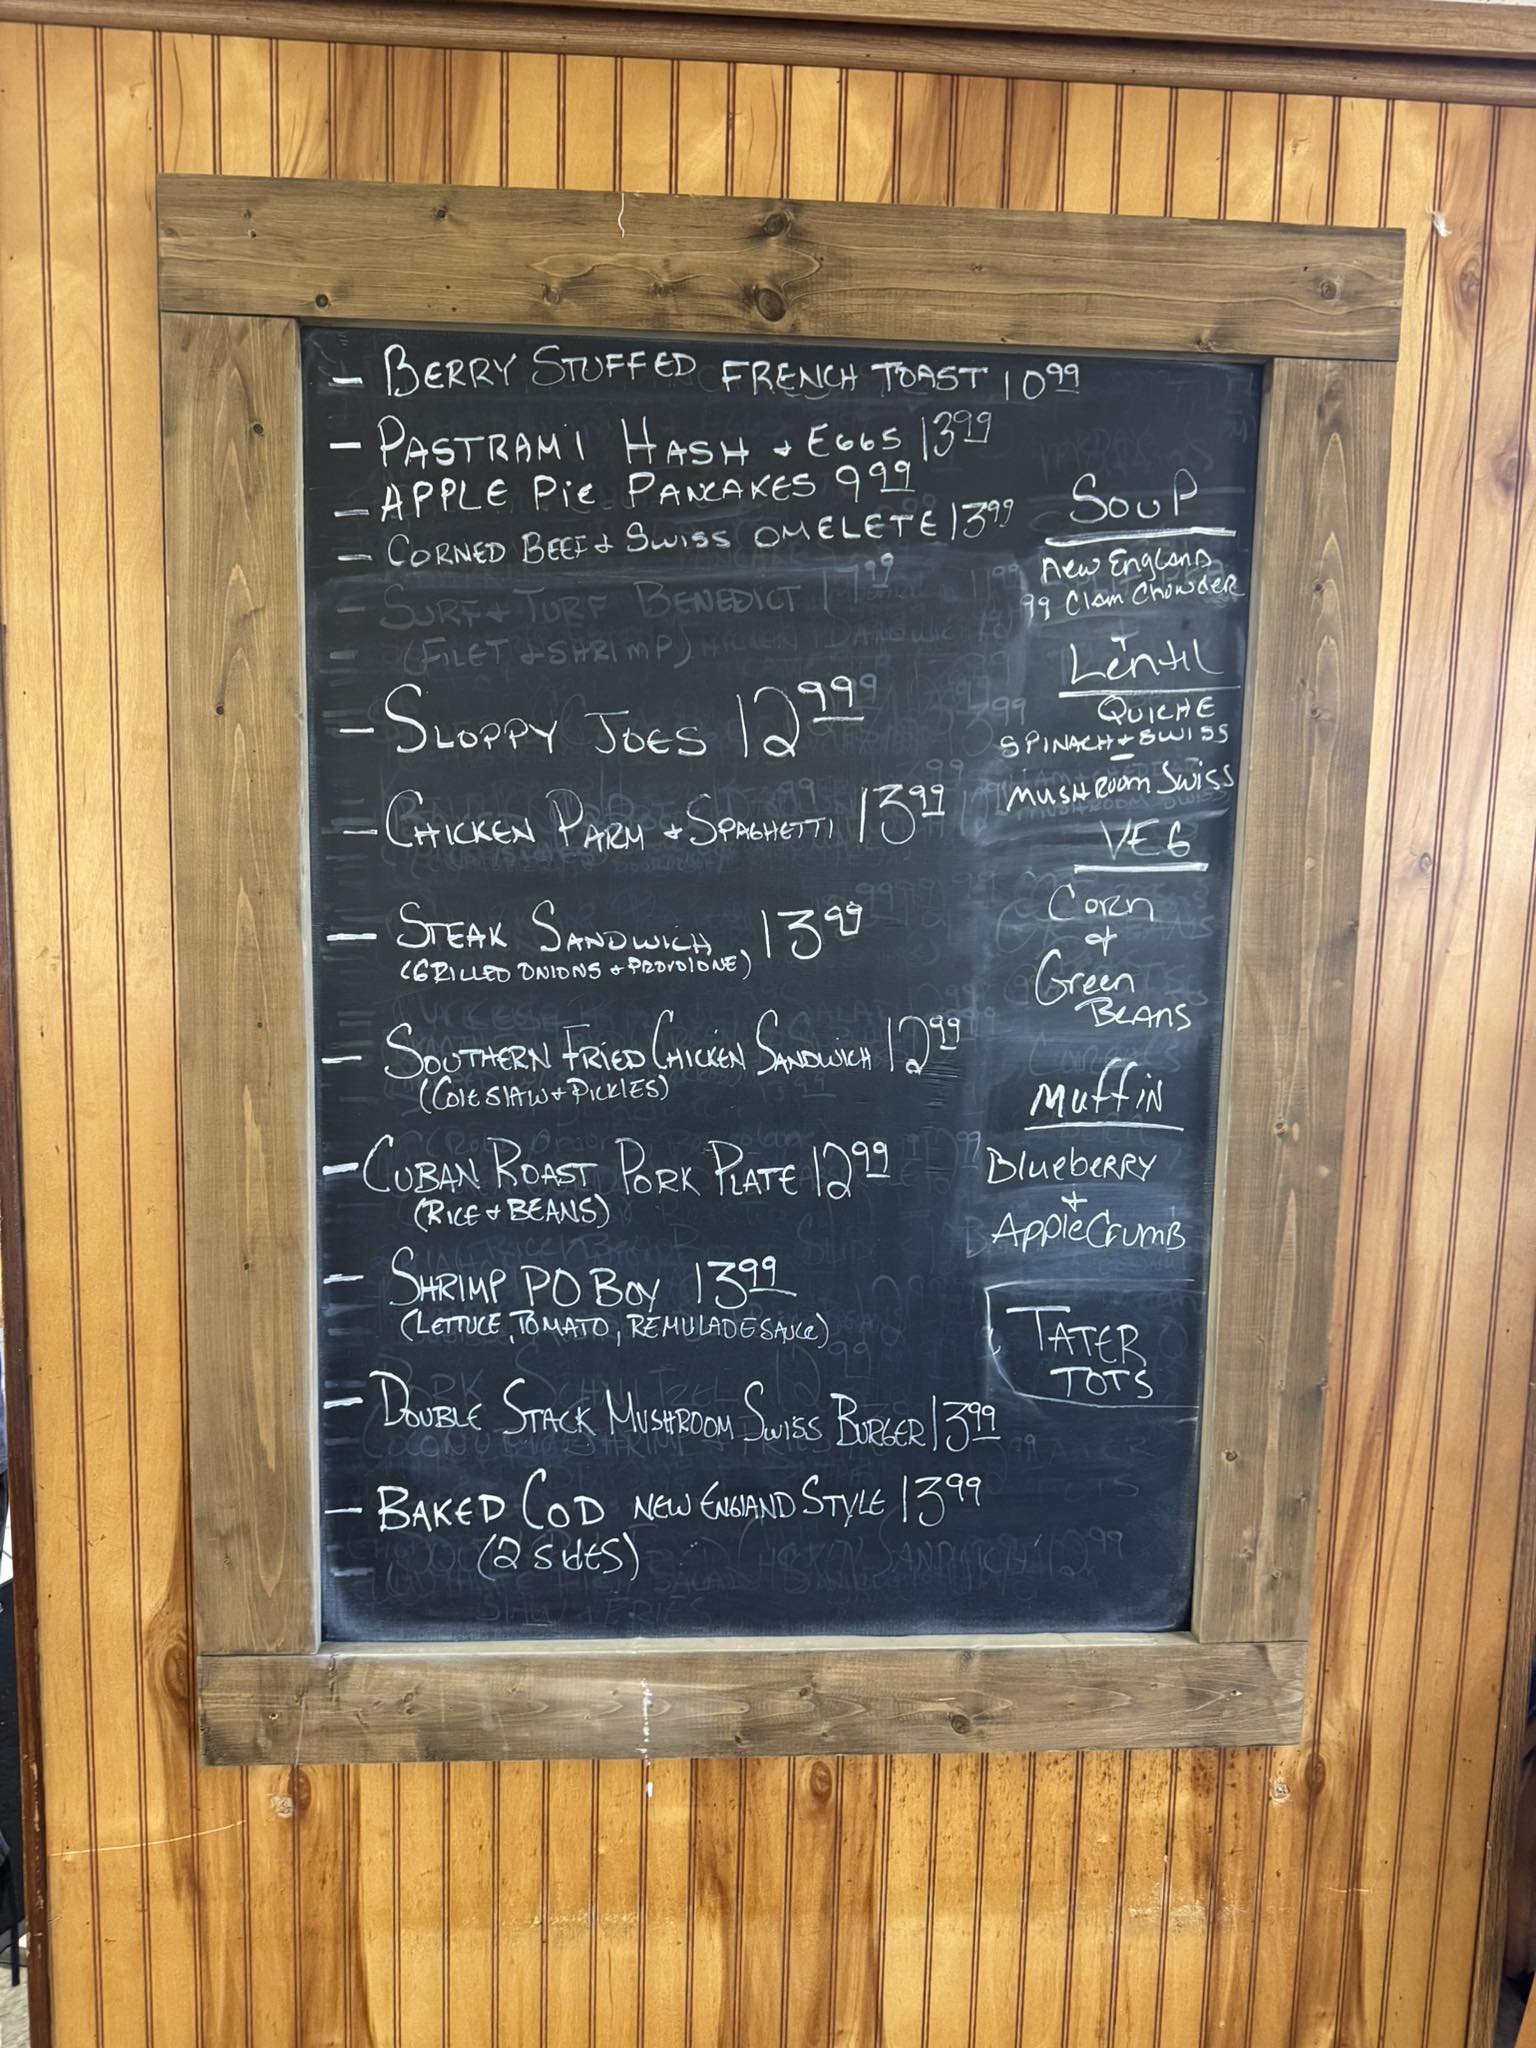 - BERRY STUFFED FRENCH TOAST 10 99
- PASTRAMI HASH + EGGS 13 99
- APPLE PIE PANCAKES 9 99
- CORNED BEEF + SWISS OMELETE 13 99
- SURF + TURF BENEDICT 17 99
(FILET + SHRIMP)
- SLOPPY JOES 12 99
- CHICKEN PARM + SPAGHETTI 13 99
- STEAK SANDWICH 13 99
(GRILLED ONIONS + PROVOLONE)
- SOUTHERN FRIED CHICKEN SANDWICH 12 99
(COLESLAW + PICKLES)
- CUBAN ROAST PORK PLATE 12 99
(RICE + BEANS)
- SHRIMP PO BOY 13 99
(LETTUCE, TOMATO, REMULADE SAUCE)
- DOUBLE STACK MUSHROOM SWISS BURGER 13 99
- BAKED COD NEW ENGLAND STYLE 13 99
(2 SIDES)
SOUP
New England
Clam Chowder
+
Lentil
QUICHE
SPINACH + SWISS
MUSHROOM SWISS
VEG
Corn
+
Green
BEANS
Muffin
Blueberry
+
Apple Crumb
TATER
TOTS